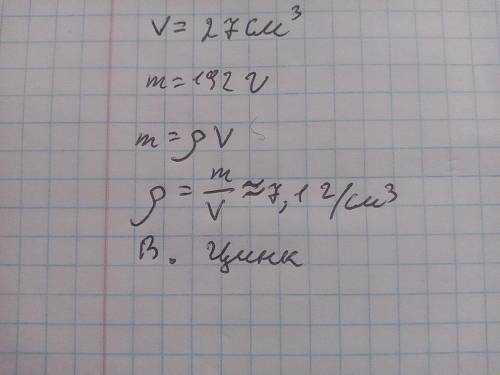 V = 27 см³
m = 192 г
m = ρV
ρ = m/V ≈ 7,1 г/см³
В. Цинк